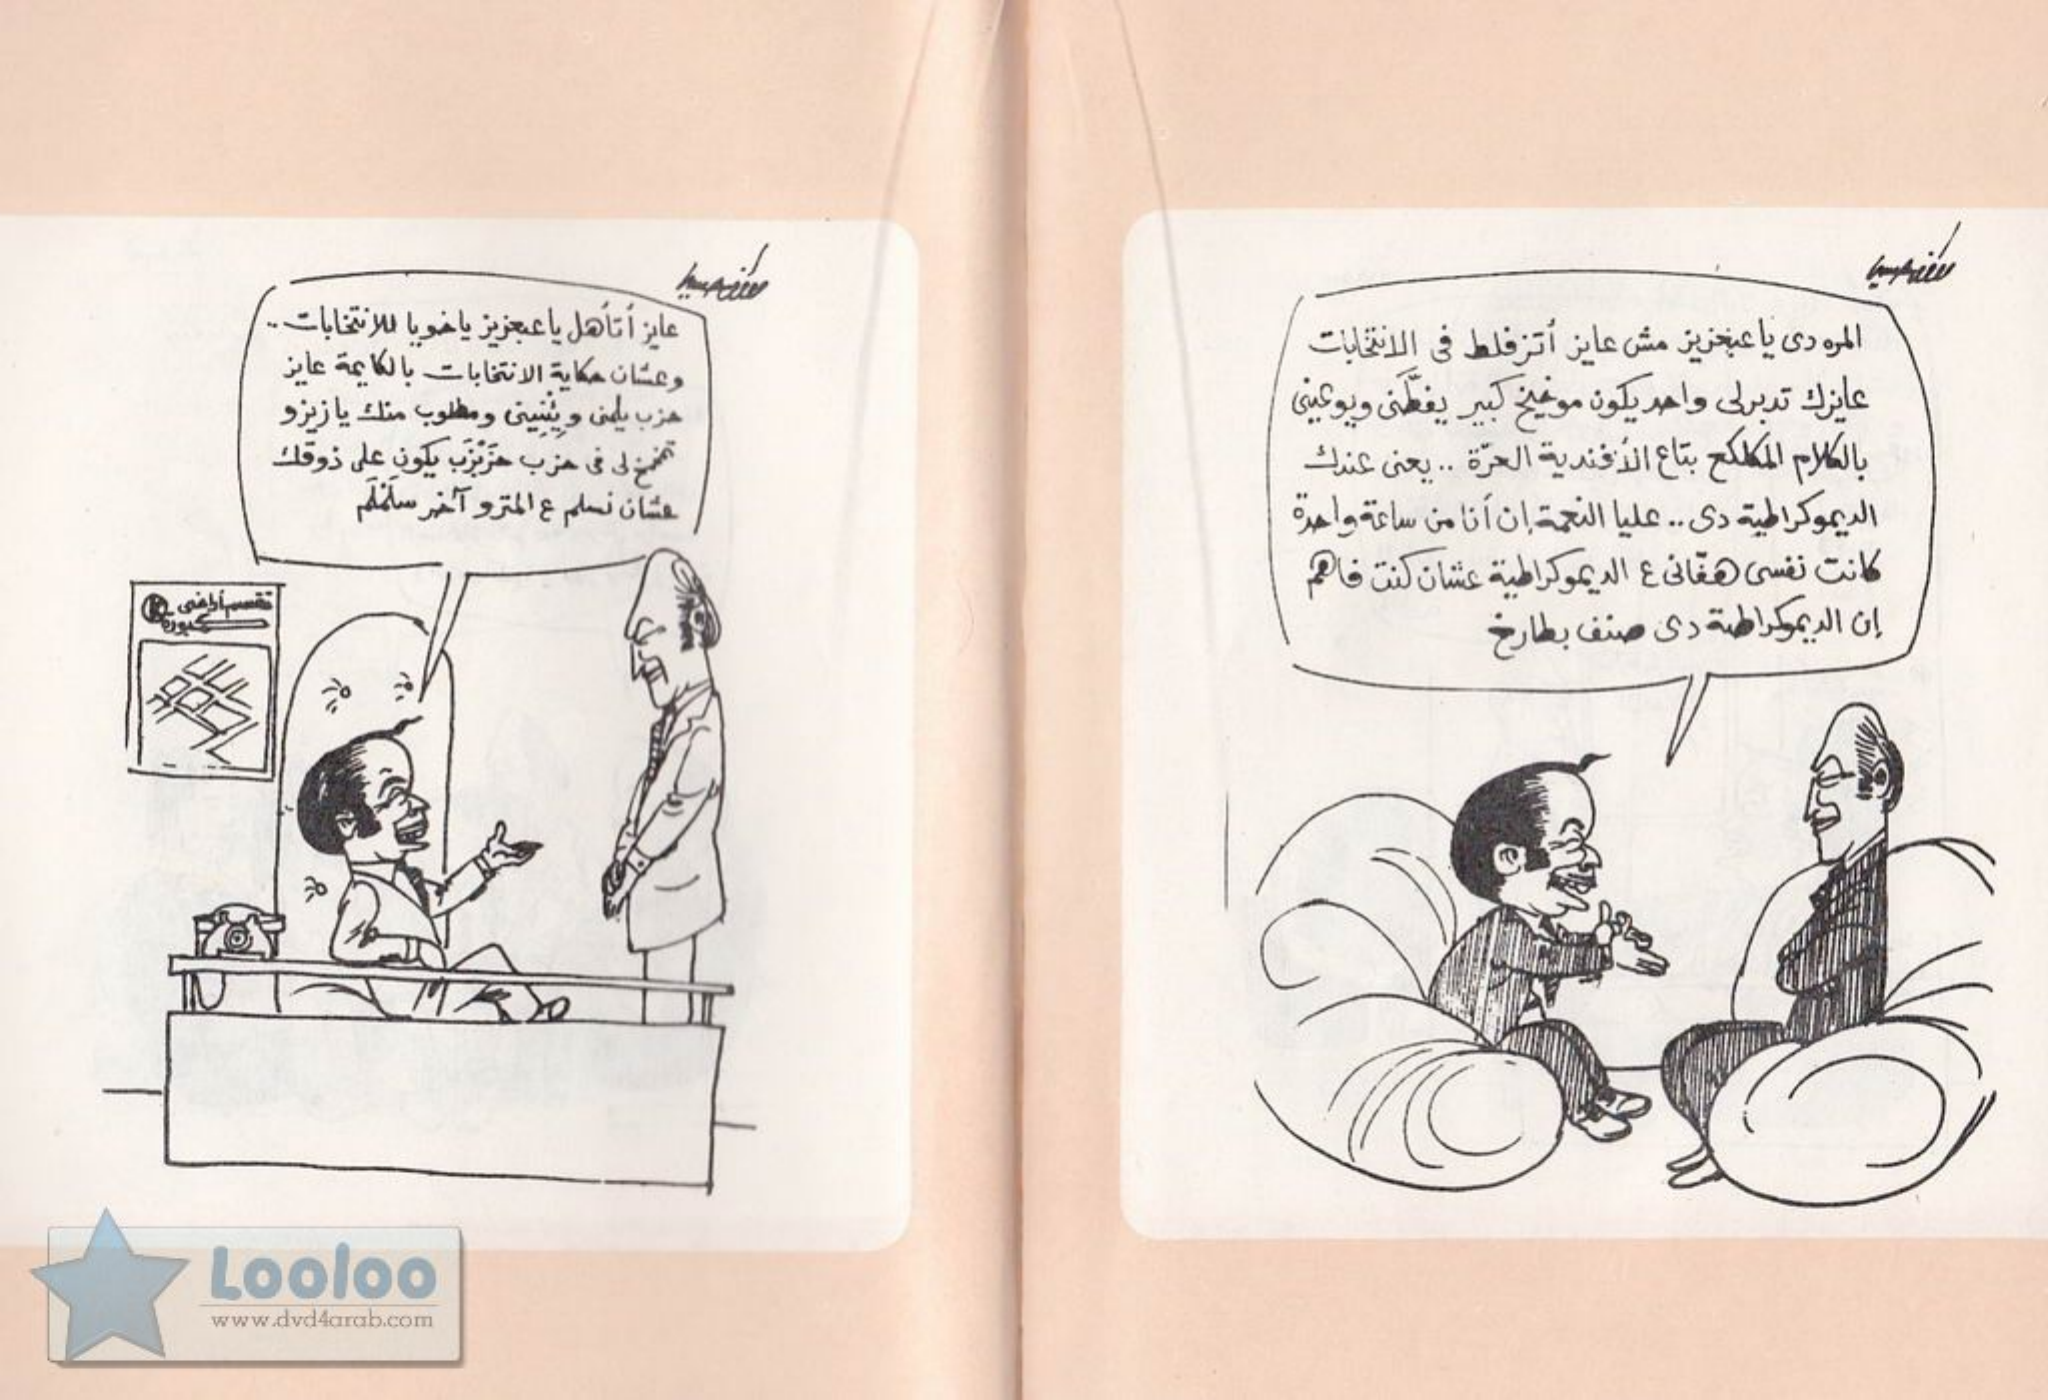 المره دى يا عبعزيز مش عايز أتزفلط فى الانتخابات
عايزك تدبرلى واحد يكون موخيخ كبير يفطّنى ويوعينى
بالكلام المكلكع بتاع الأفندية الحرّة .. يعنى عندك
الديموكراطية دى .. عليا النعمة إن أنا من ساعة واحدة
كانت نفسى هفّانى ع الديموكراطية عشان كنت فاهم
إن الديموكراطية دى صنف بطارخ
عايز أتأهل يا عبعزيز ياخويا للانتخابات ..
وعشان حكاية الانتخابات بالكايمة عايز
حزب يلمنى ويثْنِينى ومطلوب منك يا زيزو
تمخمخ لى فى حزب حَزَبْزَب يكون على ذوقك
عشان نسلم ع المترو آخر سلَمْلَم
تقسيم أراضى
Looloo
www.dvd4arab.com